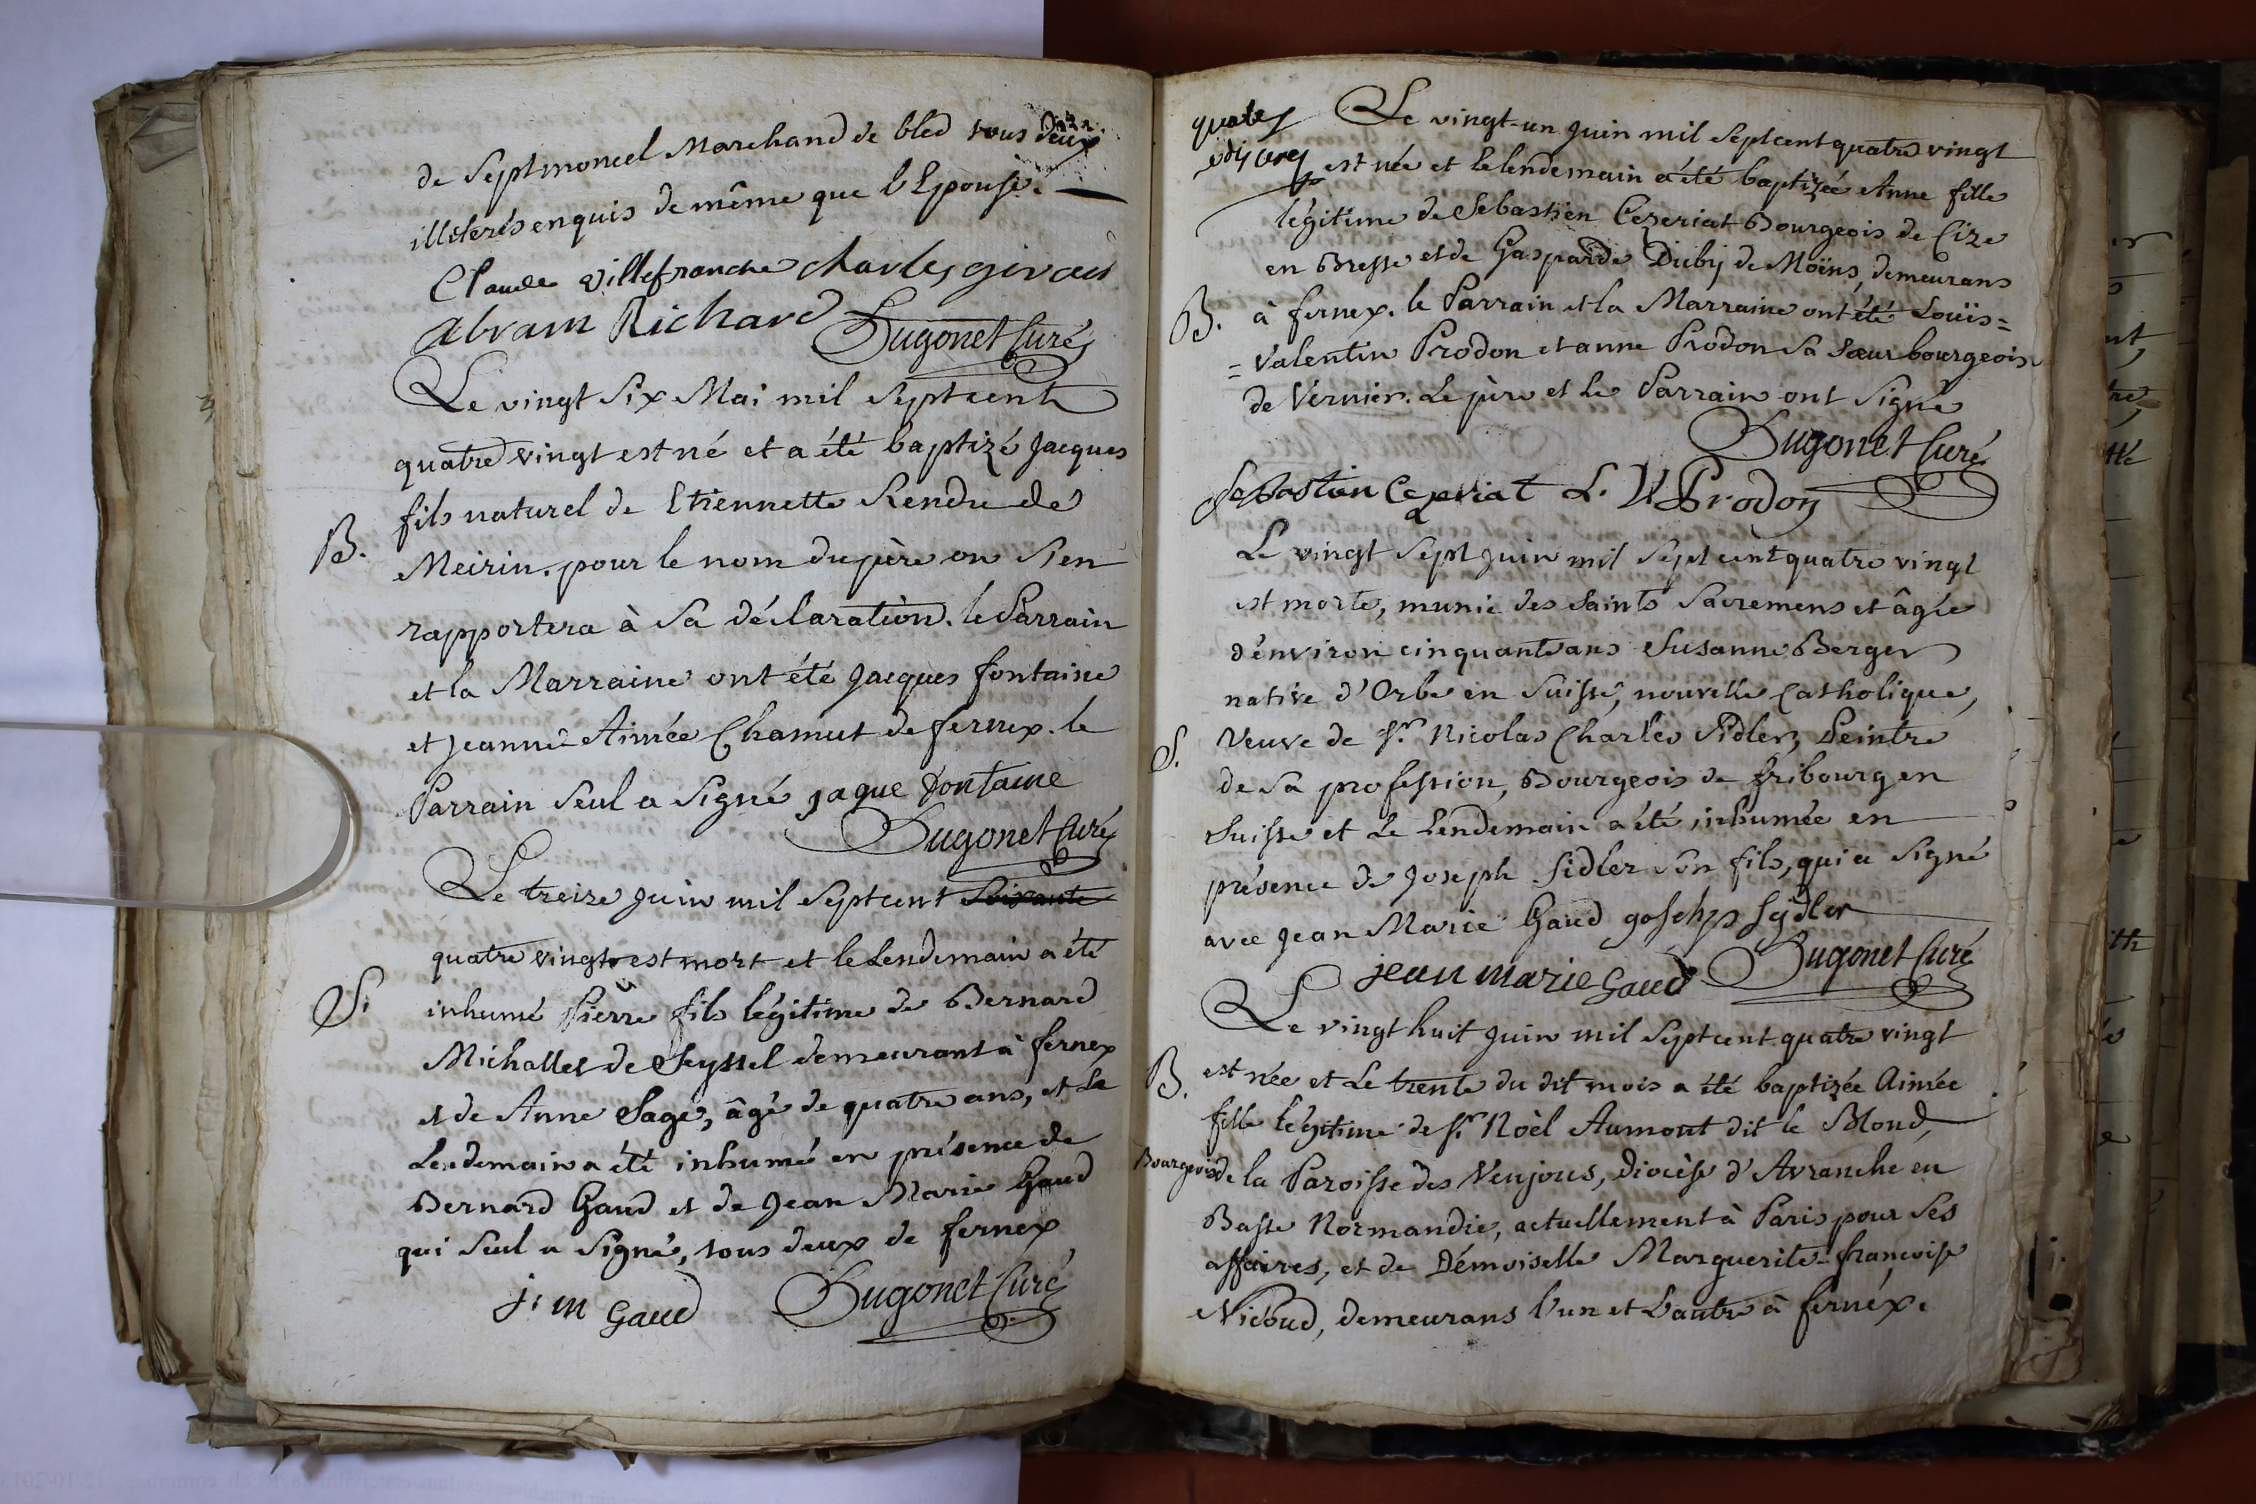 de Septmoncel Marchand de bled tous deux
illiterés enquis de même que l'Epouse.
Claude Villefranche charles girod
abram Richard Hugonet Curé
Le vingt Six Mai mil Septcent
quatre vingt est né et a été baptizé Jacques
fils naturel de Etiennette Rendu de
B.
Meirin. pour le nom du père on s'en
rapportera à Sa déclaration. le Parrain
et la Marraine ont été Jacques fontaine
et Jeanne Aimée Chamut de fernex. le
Parrain Seul a Signé jaque fontaine
Hugonet Curé
Le treize Juin mil Septcent Soixante
quatre vingt est mort et le Lendemain a été
S.
inhumé Pierre fils légitime de Bernard
Michallet de Seyssel demeurant à fernex
et de Anne Sage, âgé de quatre ans, et Le
Lendemain a été inhumé en présence de
Bernard Gaud et de Jean Marie Gaud
qui Seul a Signé, tous deux de fernex
j. m Gaud Hugonet Curé
Le vingt-un Juin mil Septcent quatre vingt
est née et le lendemain a été baptizée Anne fille
légitime de Sebastien Cezeriat Bourgeois de Cize
en Bresse et de Gasparde Duby de Moïns, demeurans
B.
à fernex. le Parrain et la Marraine ont été Loüis=
=Valentin Prodon et anne Prodon Sa Sœur bourgeois
de Vernier. Le père et le Parrain ont Signé
Hugonet Curé
Sebastien Cezeriat L. V Prodon
Le vingt Sept Juin mil Sept cent quatre vingt
est morte, munie des Saints Sacremens et âgée
d'environ cinquante ans Susanne Berger
native d'Orbe en Suisse, nouvelle Catholique,
S.
Veuve de Sr. Nicolas Charles Sidler, Peintre
de Sa profession, Bourgeois de fribourg en
Suisse et Le Lendemain a été inhumée en
présence de Joseph Sidler Son fils, qui a Signé
avec Jean Marie Gaud Joseph Sydler
jean marie Gaud Hugonet Curé
Le vingt huit Juin mil Septcent quatre vingt
B.
est née et Le trente du dit mois a été baptizée Aimée
fille légitime de Sr. Noèl Aumont dit le Blond,
Bourgeois de la Paroisse des Veujous, Diocèse d'Avranche en
Basse Normandie, actuellement à Paris pour Ses
affaires, et de Démoiselle Marguerite françoise
Nicoud, demeurans l'un et L'autre à fernex.